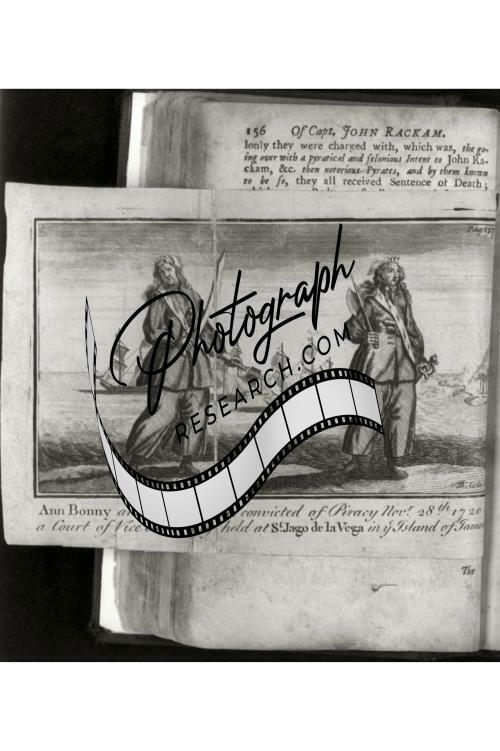 156 Of Capt. JOHN RACKAM.
lonly they were charged with, which was, the go-
ing over with a pyratical and felonious Intent to John Ra-
ckam, &c. then notorious Pyrates, and by them known
to be so, they all received Sentence of Death;
Pag: 157
Photograph
RESEARCH.COM
B. Cole
Ann Bonny convicted of Piracy Novr. 28th. 1720
a Court of Vice held at St. Jago de la Vega in ye Island of Jama
The